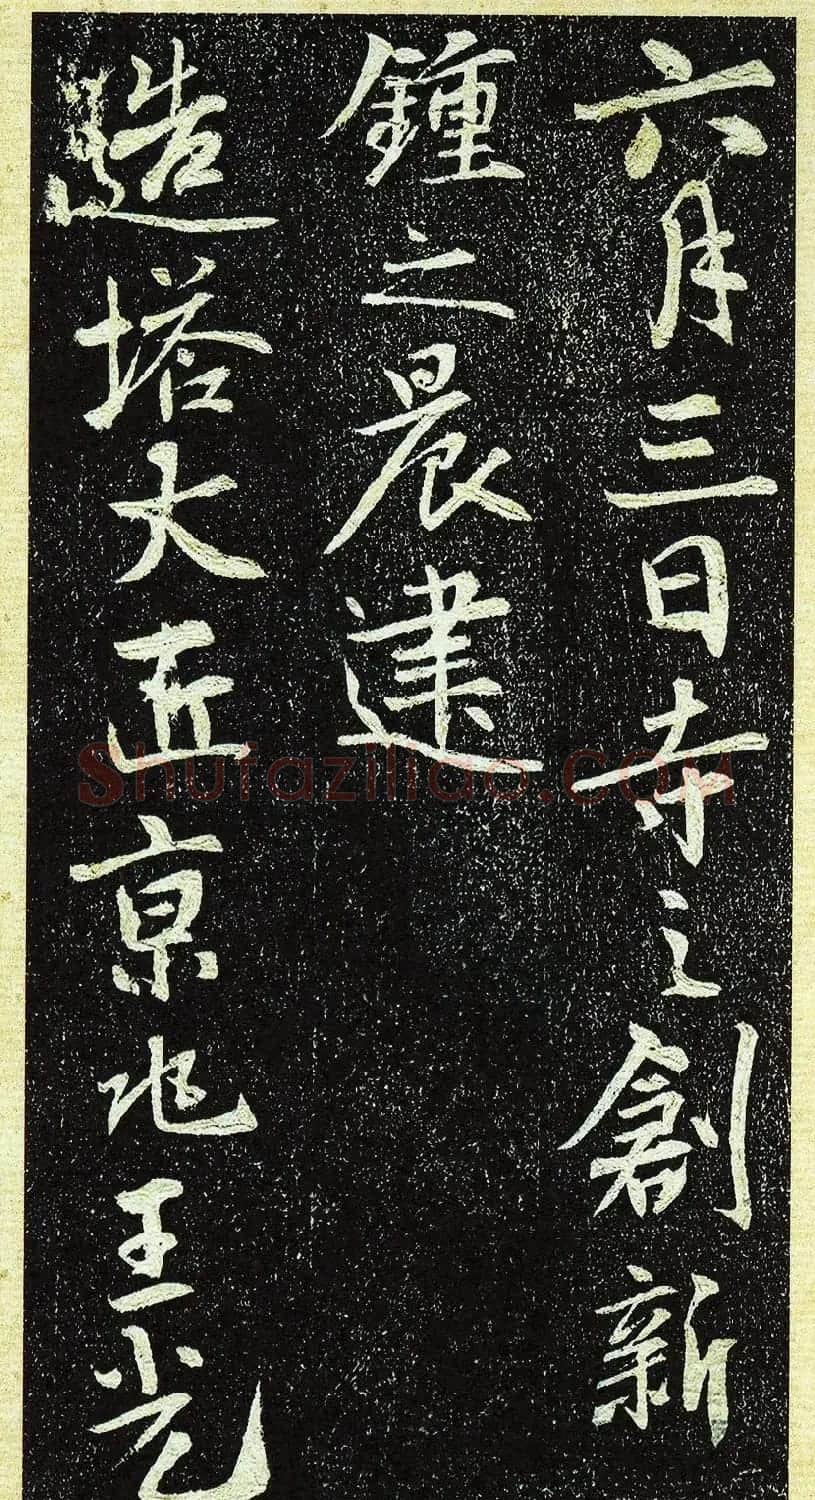 六月三日寺之創新
鍾之晨建
造塔大匠京兆王光
Shufaziliao.COM